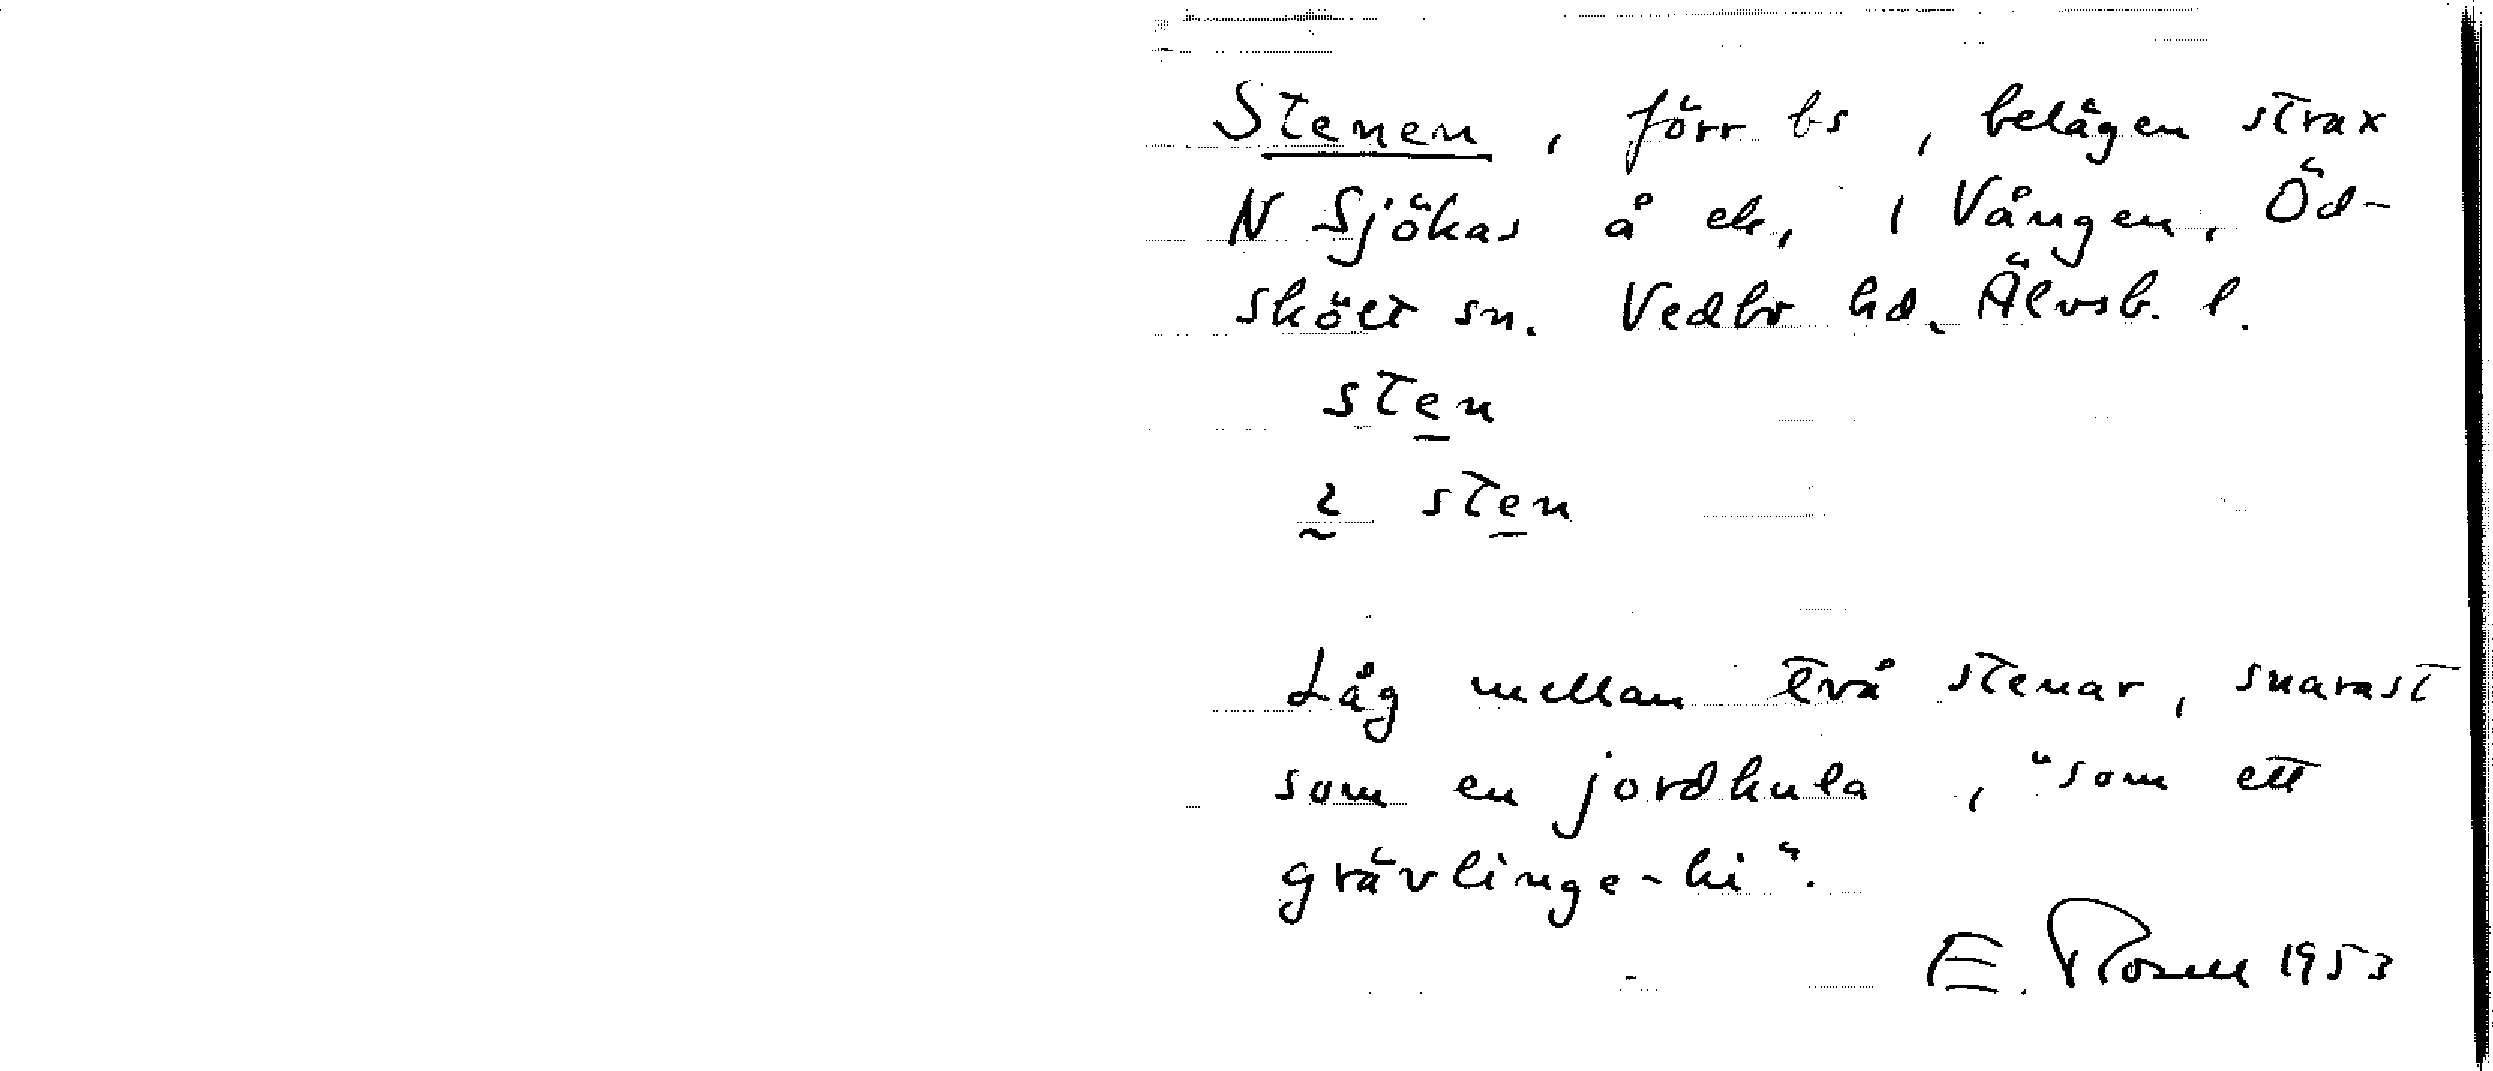 Stenen, förr bs, belägen strax
N Sjökas å ek, i Vången, Öd-
skölt sn. Vedbo hd. Älvsb. l.
sten
ɩ sten
Låg mellan två stenar, snarast
som en jordkula, "som ett
grävlinge-hi".
E. Rosell 1953